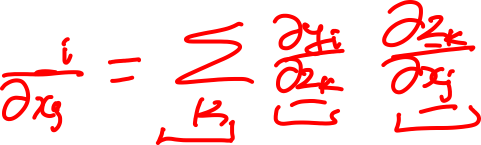 i/∂xj = Σk ∂yi/∂zk ∂zk/∂xj